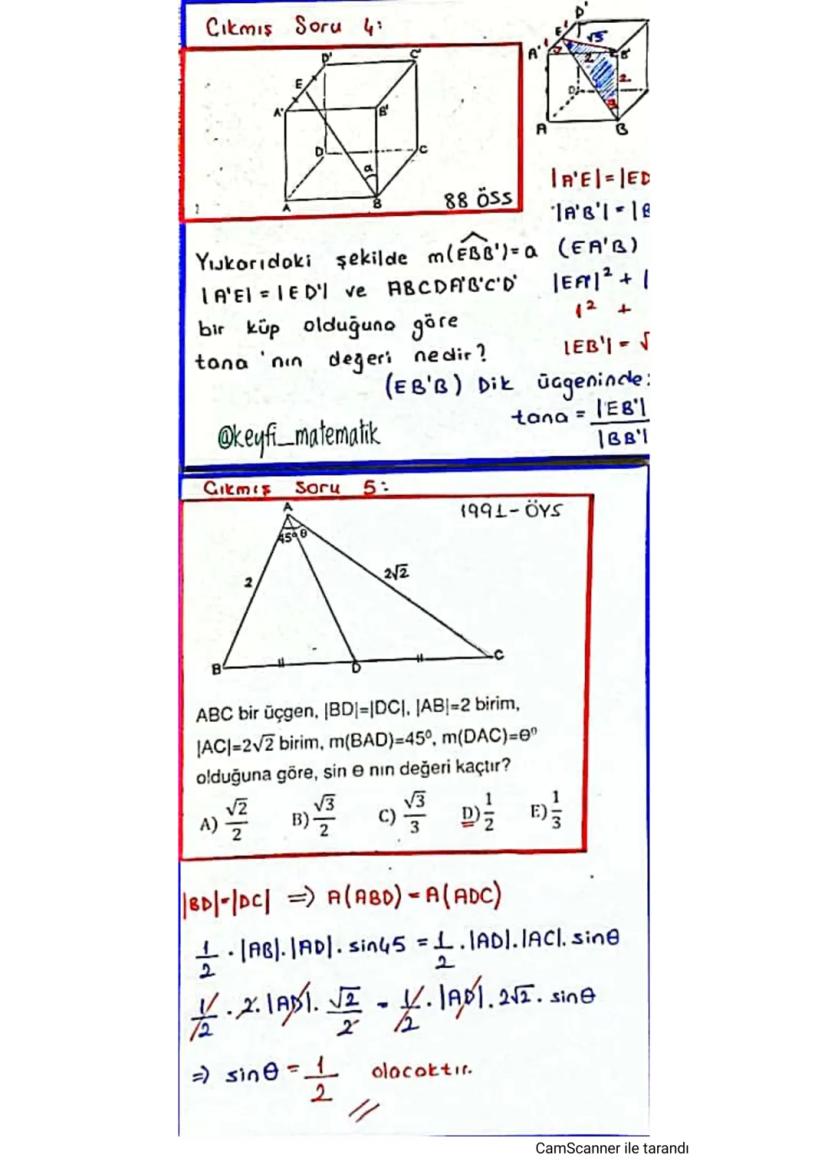 Çıkmış Soru 4:
D'
C'
E
A'
B'
D
C
α
A
B
88 ÖSS
D'
E'
√5
A'
B'
2
2
D
A
B
|A'E|=|ED
|A'B'|=|B
Yukarıdaki şekilde m(EBB')=a
(EA'B)
|A'E|=|ED'| ve ABCDA'B'C'D'
|EA'|² + |
bir küp olduğuna göre
1² +
tana 'nın değeri nedir?
|EB'| = √
(EB'B) Dik üçgeninde:
tana = |EB'|
|BB'|
@keyfi_matematik
Çıkmış Soru 5:
1991-ÖYS
A
45° θ
2
2√2
B
D
C
ABC bir üçgen, |BD|=|DC|, |AB|=2 birim,
|AC|=2√2 birim, m(BAD)=45⁰, m(DAC)=θ⁰
olduğuna göre, sin θ nın değeri kaçtır?
A) √2/2 B) √3/2 C) √3/3 D) 1/2 E) 1/3
|BD|=|DC| => A(ABD) = A(ADC)
1/2 . |AB|.|AD|. sin45 = 1/2 .|AD|.|AC|. sinθ
1/2 . 2.|AD|. √2/2 = 1/2 . |AD|. 2√2. sinθ
=> sinθ = 1/2 olacaktır.
CamScanner ile tarandı